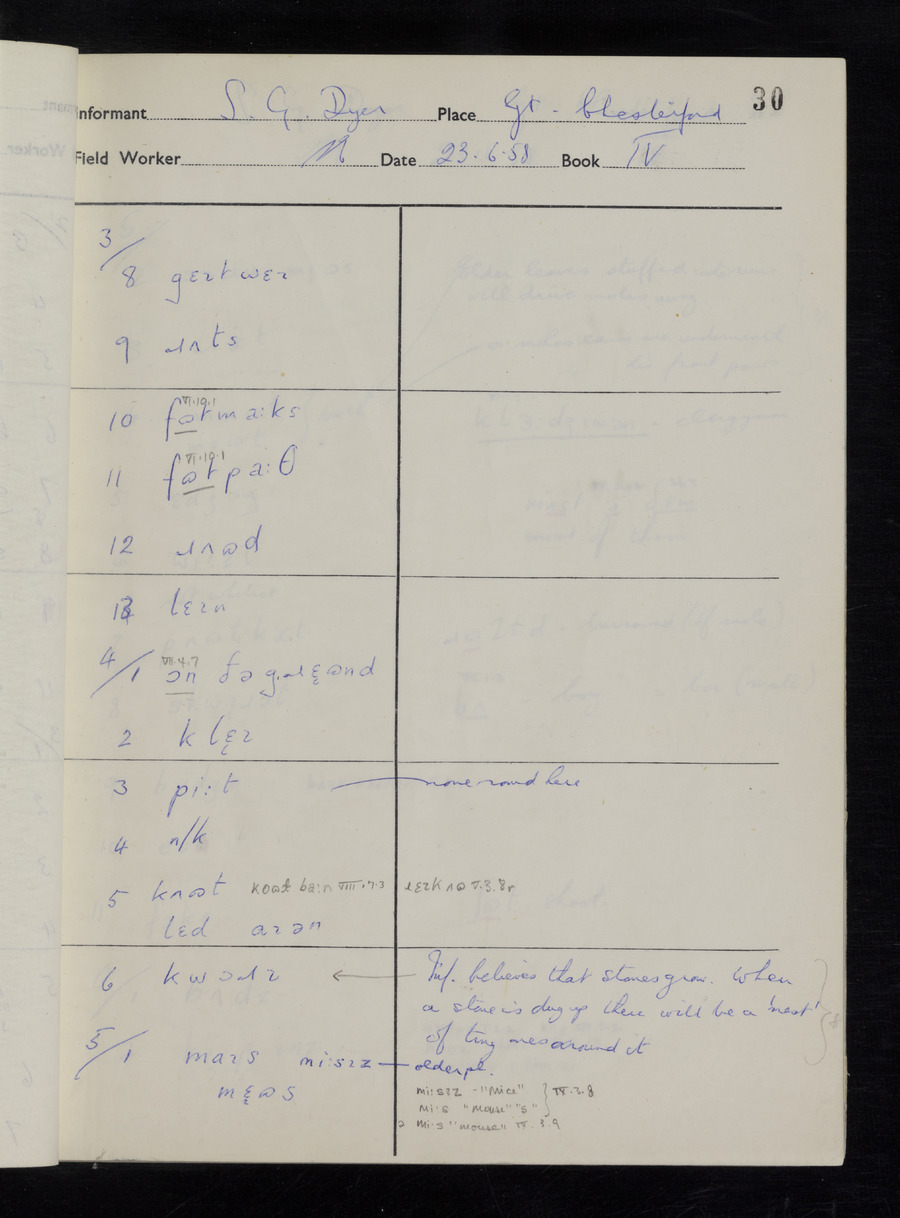 30
Informant S. G. Dyer Place Gt. Chesterford
Field Worker Date 23.6.58 Book IV
3/
8 gɛɪtwɛɪ
9 ɹʌts
VI.10.1
10 fɷtma:ks
VI.10.1
11 fɷtpa:θ
12 ɹʌɷd
13 lɛɪn
VII.4.7
4/1 ɔn ðə gɹɛɷnd
2 klɛɪ
3 pi:t none round here
4 n/k
5 knɷt koɷt ba:n VIII.7.3 ɹɛɪkʌɷ V.3.8r
lɛd aɪən
6 kwɔɹɪ Inf. believes that stones grow. When
a stone is dug up there will be a 'nest'
of tiny ones around it
5/1 maɪs mi:sɪz older pl.
mɛɷs
mi:sɪz - "mice" IV.3.8
mi:s "mouse" "s"
mi:s "mouse" IV.3.9